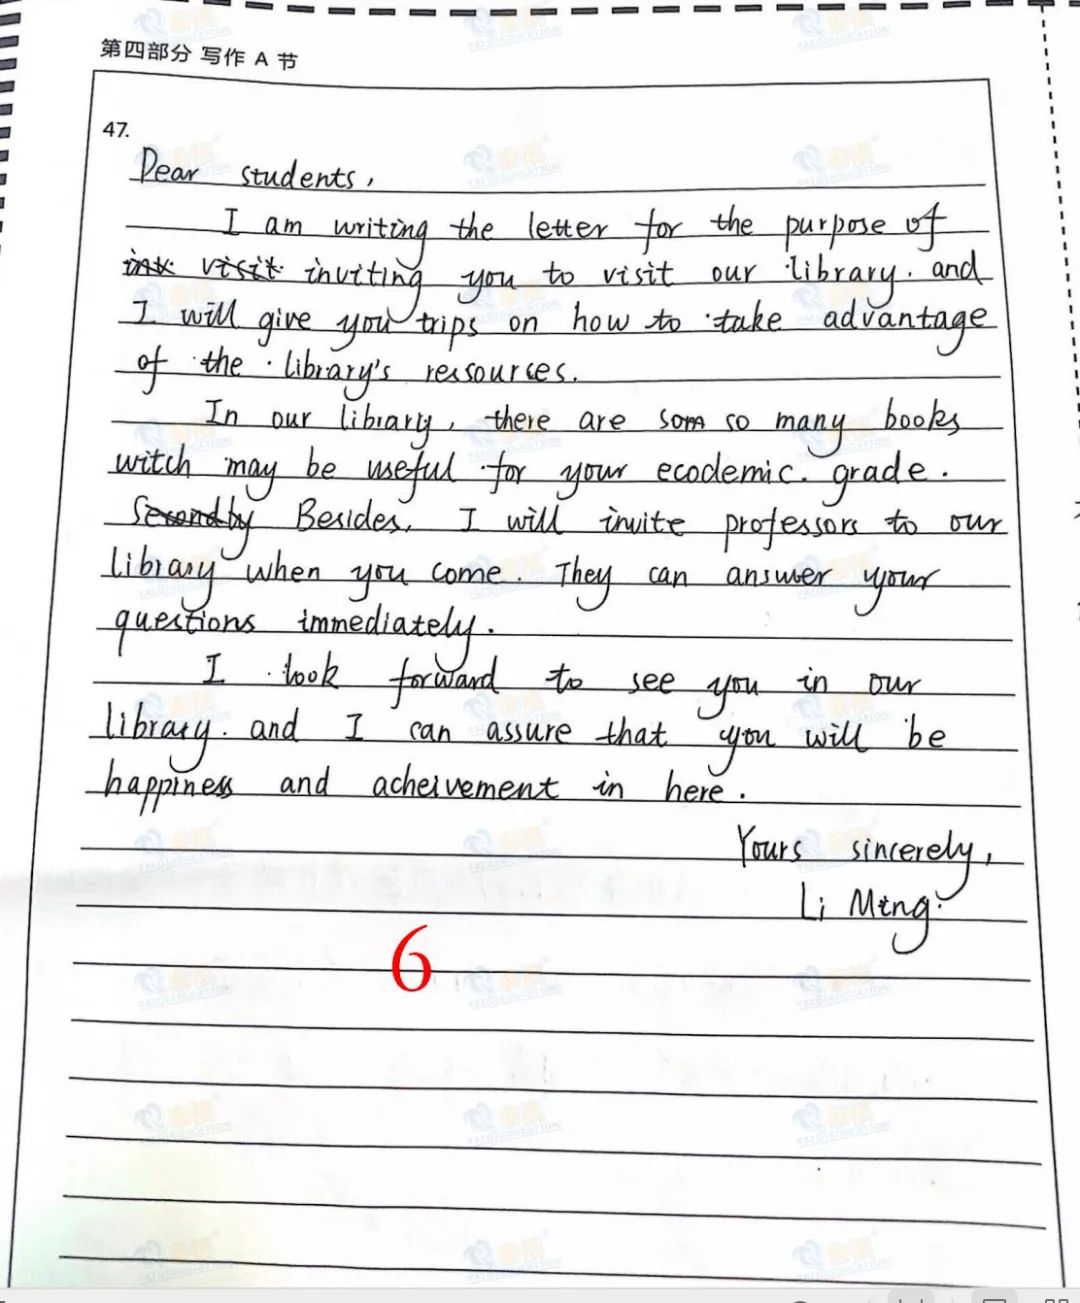 第四部分 写作 A 节
47.
Dear students,
I am writing the letter for the purpose of
inv visit inviting you to visit our library. and
I will give you trips on how to take advantage
of the library's ressources.
In our library, there are som so many books
witch may be useful for your ecodemic. grade.
Secondly Besides, I will invite professors to our
library when you come. They can answer your
questions immediately.
I look forward to see you in our
library. and I can assure that you will be
happiness and acheivement in here.
Yours sincerely,
Li Ming.
6